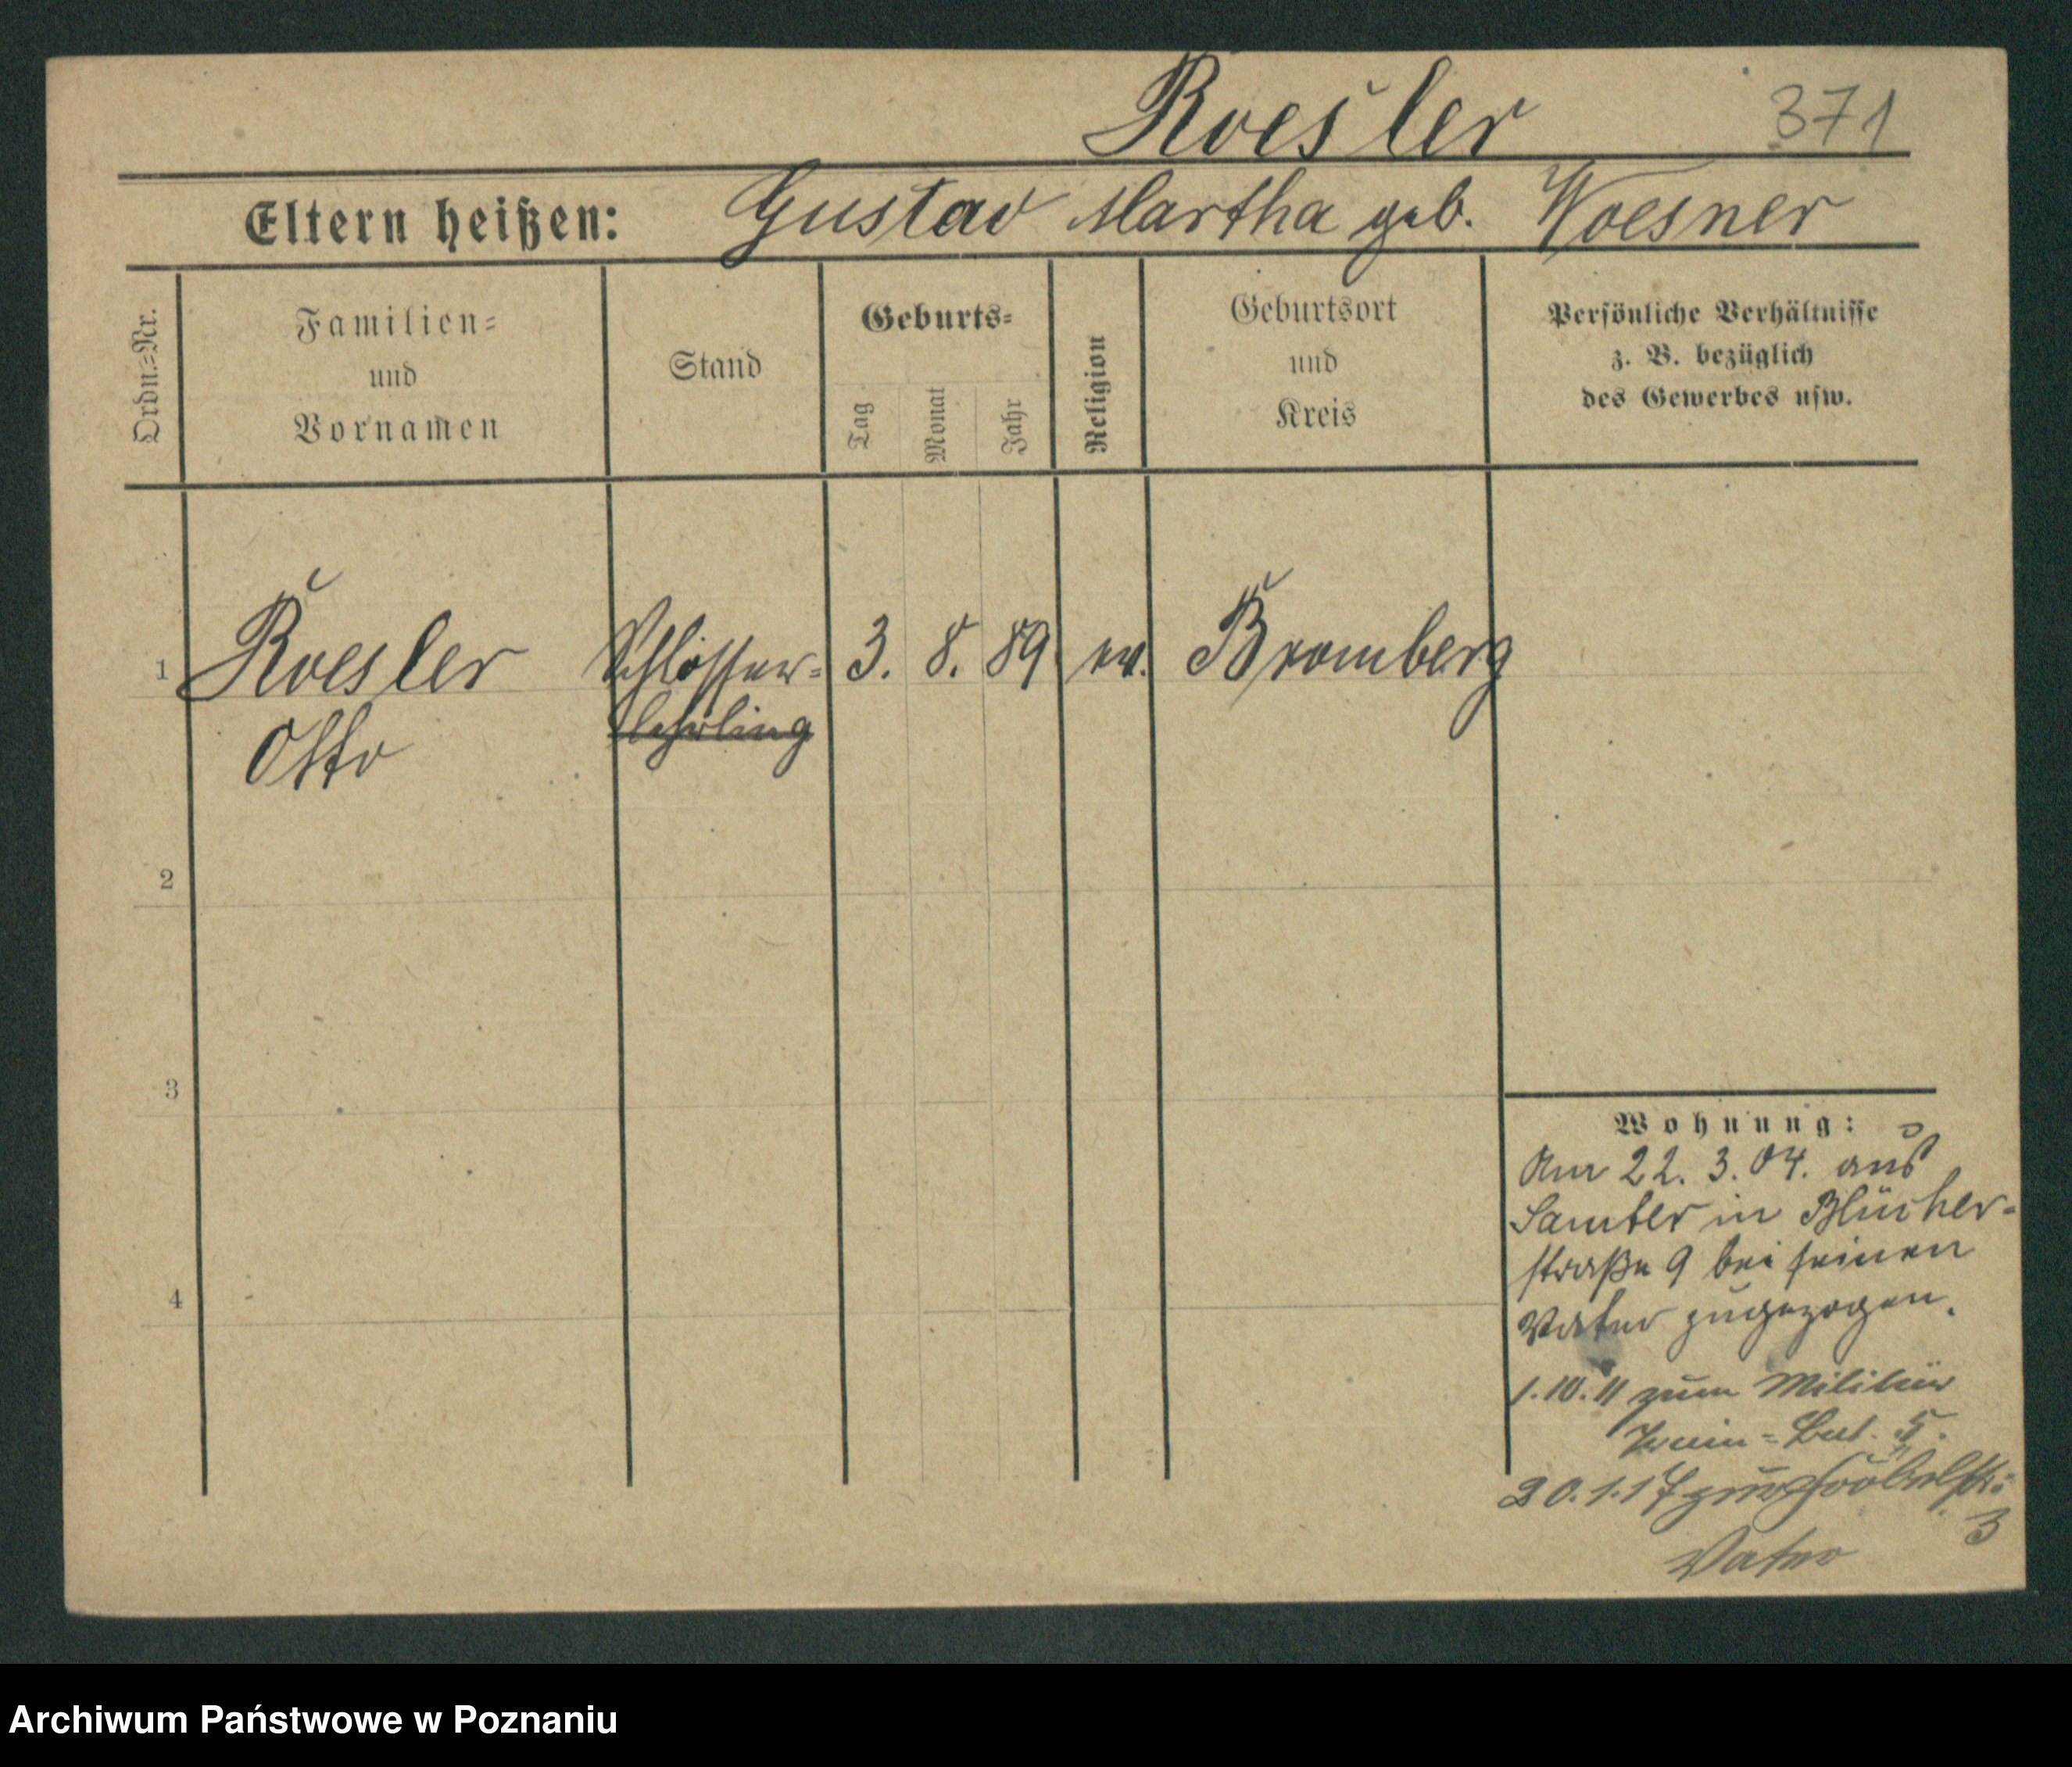 Roesler 371
Eltern heißen: Gustav Martha geb. Woesner
Ordn.=Nr.
Familien=
und
Vornamen
Stand
Geburts=
Tag
Monat
Jahr
Religion
Geburtsort
und
Kreis
Persönliche Verhältnisse
z. B. bezüglich
des Gewerbes usw.
1 Roesler Schlosser= 3. 8. 89 ev. Bromberg
Otto lehrling
2
3
4
Wohnung:
Am 22. 3. 04. aus
Samter in Blücher-
straße 9 bei seinen
Vater zugezogen.
1.10.11 zum Militär
Train=Bat. 5.
20.1.17 zur
3
Vater
Archiwum Państwowe w Poznaniu